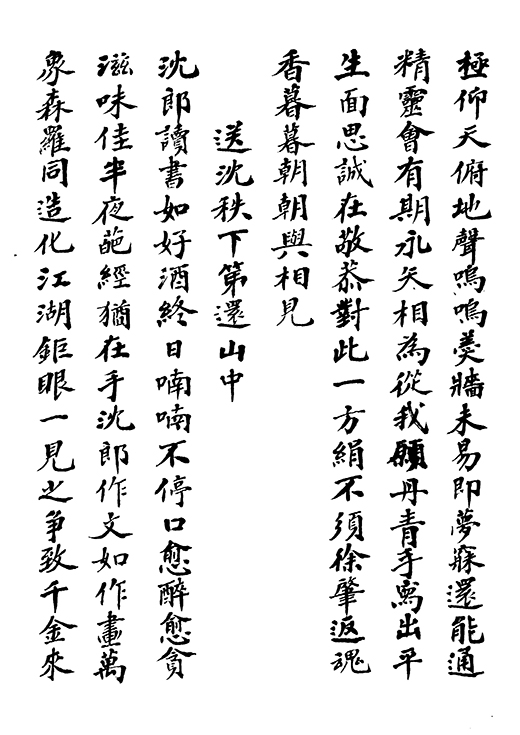 極仰天俯地聲嗚嗚羹牆未易即夢寐還能通
精靈會有期永矢相為從我願丹青手寫出平
生面思誠在敬恭對此一方絹不須徐肇返魂
香暮暮朝朝與相見
送沈秩下第還山中
沈郎讀書如好酒終日喃喃不停口愈醉愈貪
滋味佳半夜葩經猶在手沈郎作文如作畫萬
象森羅同造化江湖鉅眼一見之爭致千金來